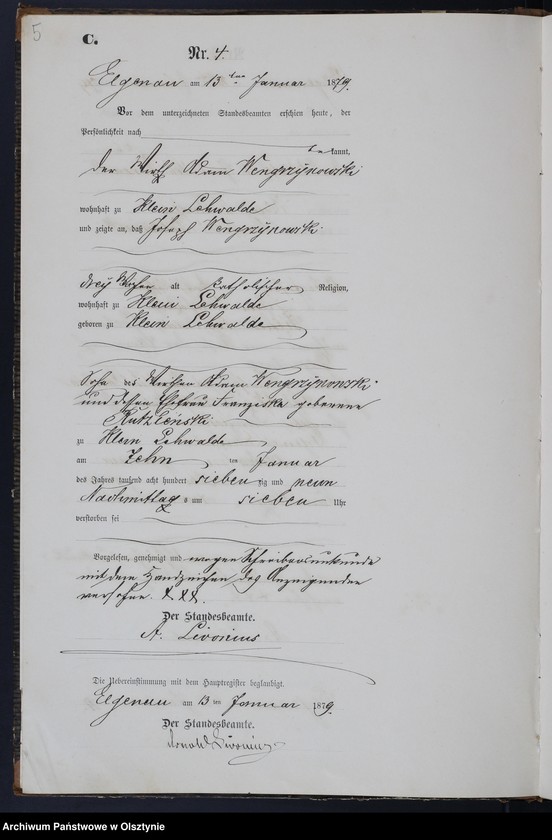 5
C.
Nr. 4.
Elgenau am 13 ten Januar 1879.
Vor dem unterzeichneten Standesbeamten erschien heute, der
Persönlichkeit nach
be kannt,
der Wirth Adam Wengrzynowski
wohnhaft zu Klein Lehwalde
und zeigte an, daß Joseph Wengrzynowski
drey Wochen alt katholischer Religion,
wohnhaft zu Klein Lehwalde
geboren zu Klein Lehwalde
Sohn des Wirthen Adam Wengrzynowski
und dessen Ehefrau Franziska geborene
zu Klein Lehwalde
am Zehn ten Januar
des Jahres tausend acht hundert sieben zig und neun
Nachmittag s um sieben Uhr
verstorben sei
Vorgelesen, genehmigt und wegen Schreibensunkunde
mit dem Handzeichen des Anzeigenden
versehen. XXX.
Der Standesbeamte.
A. Livonius
Die Uebereinstimmung mit dem Hauptregister beglaubigt.
Elgenau am 13 ten Januar 1879.
Der Standesbeamte.
Arnold Livonius
Archiwum Państwowe w Olsztynie